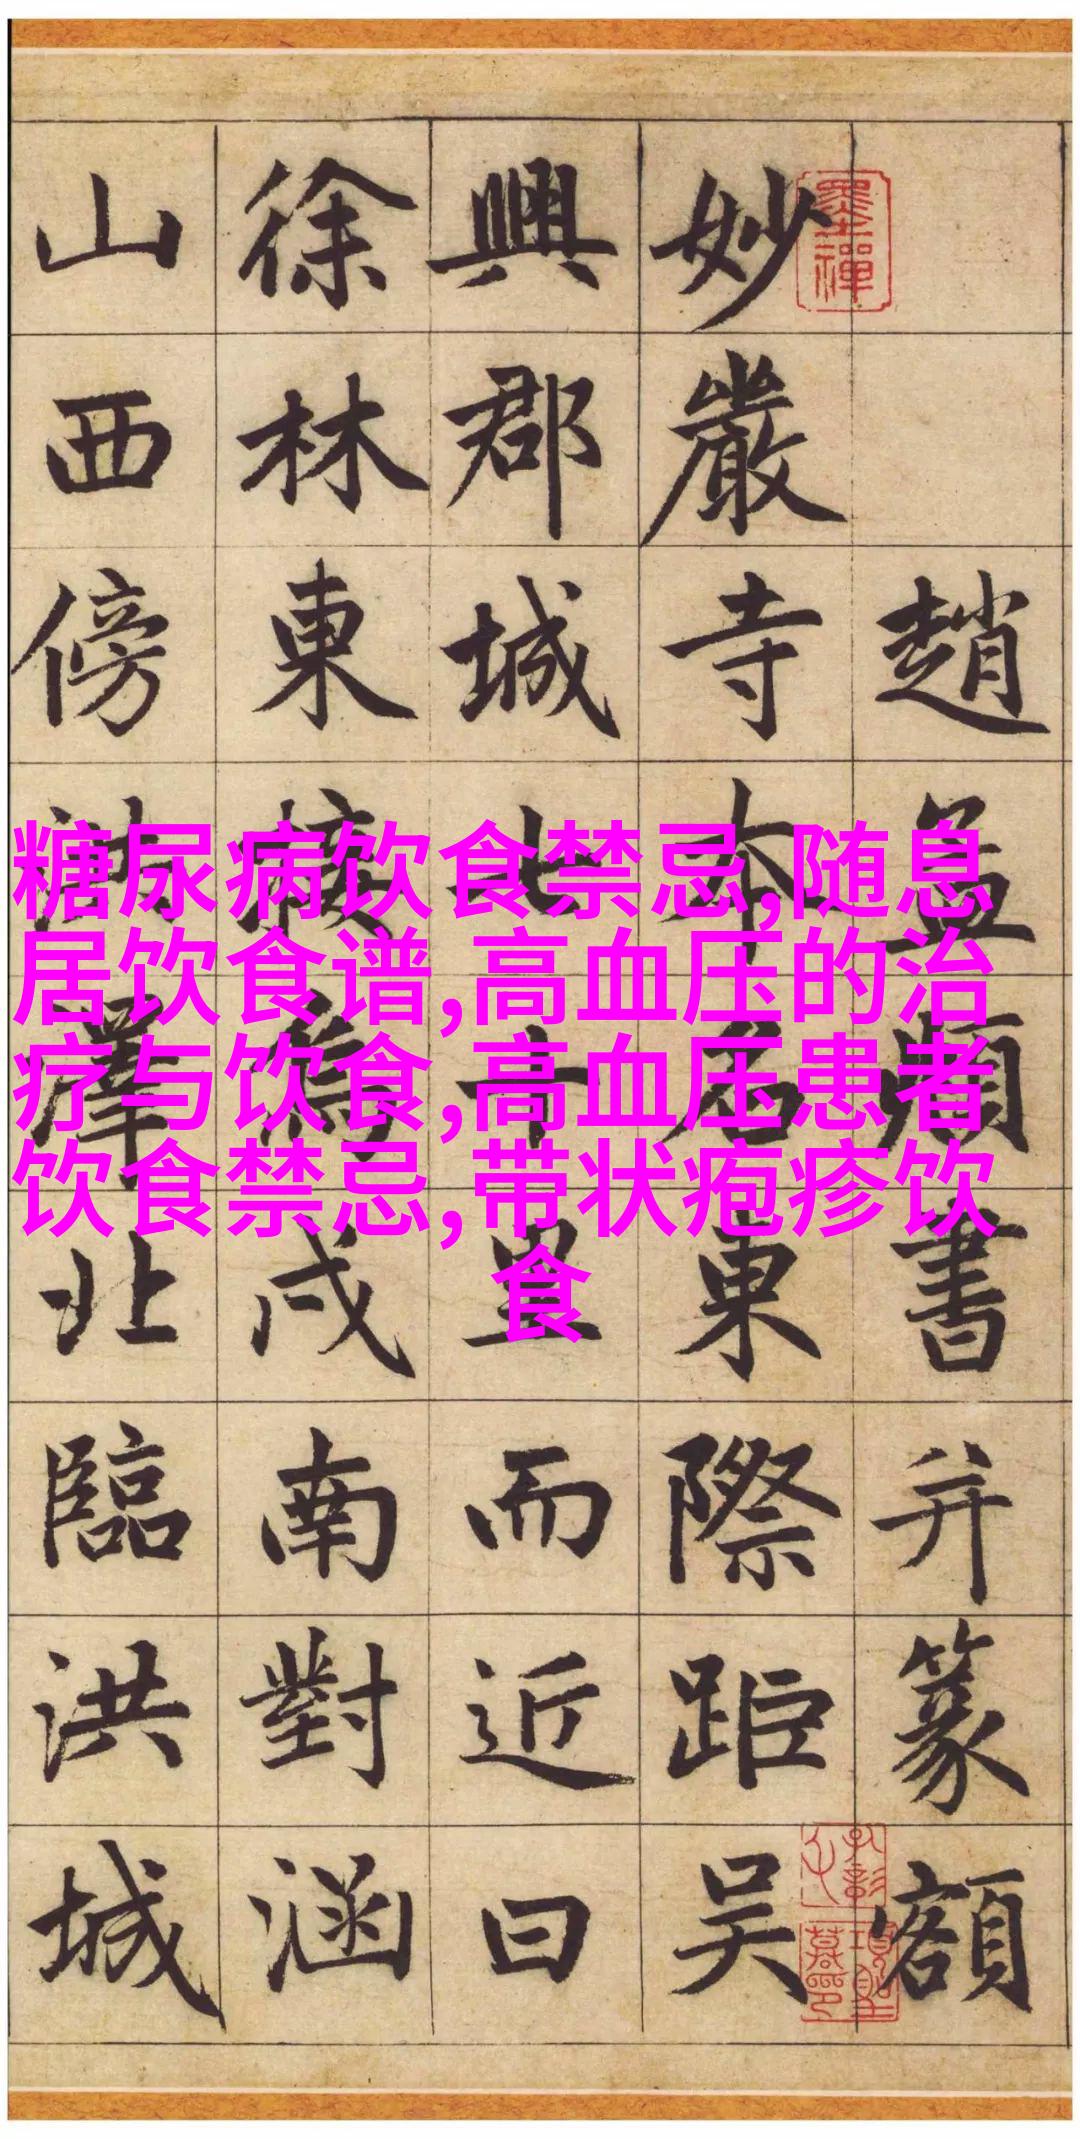 趙孟頫書并篆額
妙嚴寺本名東際距吳
興郡城七十里而近曰
徐林東接烏戍南對涵
山西傍洪澤北臨洪城
墨禪
糖尿病饮食禁忌,随息
居饮食谱,高血压的治
疗与饮食,高血压患者
饮食禁忌,带状疱疹饮
食